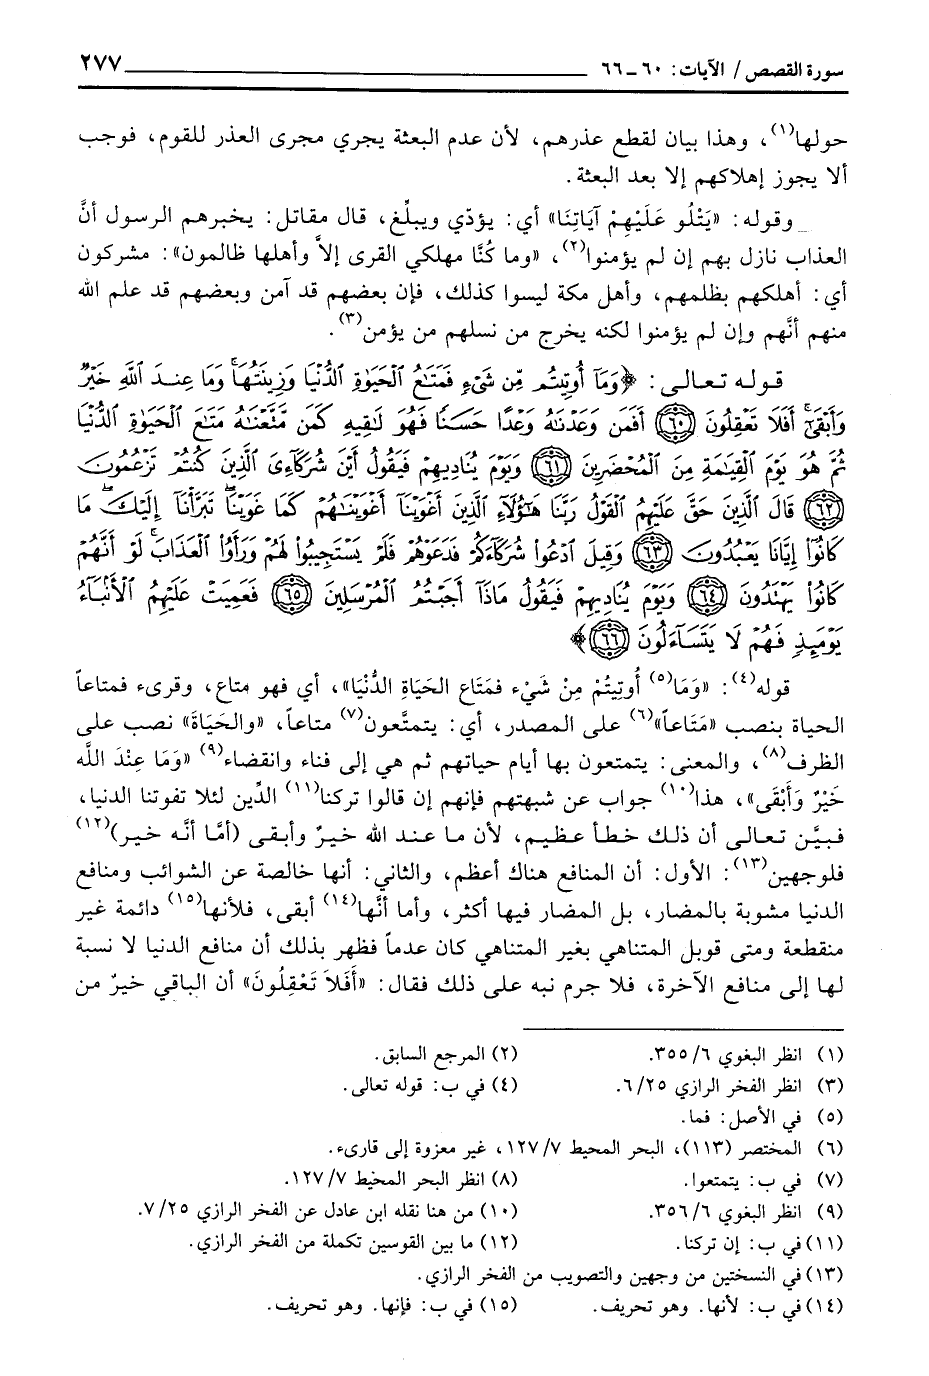 سورة القصص / الآيات: ٦٠ ـ ٦٦ ٢٧٧
حولها(١)، وهذا بيان لقطع عذرهم، لأن عدم البعثة يجري مجرى العذر للقوم، فوجب
ألا يجوز إهلاكهم إلا بعد البعثة.
وقوله: «يَتْلُو عَلَيْهِمْ آيَاتِنَا» أي: يؤدّي ويبلّغ، قال مقاتل: يخبرهم الرسول أنَّ
العذاب نازل بهم إن لم يؤمنوا(٢)، «وما كُنَّا مهلكي القرى إلاَّ وأهلها ظالمون»: مشركون
أي: أهلكهم بظلمهم، وأهل مكة ليسوا كذلك، فإن بعضهم قد آمن وبعضهم قد علم الله
منهم أنَّهم وإن لم يؤمنوا لكنه يخرج من نسلهم من يؤمن(٣).
قوله تعالى: ﴿وَمَآ أُوتِيتُم مِّن شَيْءٍ فَمَتَٰعُ ٱلْحَيَوٰةِ ٱلدُّنْيَا وَزِينَتُهَاۚ وَمَا عِندَ ٱللَّهِ خَيْرٌ
وَأَبْقَىٰٓۚ أَفَلَا تَعْقِلُونَ ٦٠ أَفَمَن وَعَدْنَٰهُ وَعْدًا حَسَنًا فَهُوَ لَٰقِيهِ كَمَن مَّتَّعْنَٰهُ مَتَٰعَ ٱلْحَيَوٰةِ ٱلدُّنْيَا
ثُمَّ هُوَ يَوْمَ ٱلْقِيَٰمَةِ مِنَ ٱلْمُحْضَرِينَ ٦١ وَيَوْمَ يُنَادِيهِمْ فَيَقُولُ أَيْنَ شُرَكَآءِىَ ٱلَّذِينَ كُنتُمْ تَزْعُمُونَ
٦٢ قَالَ ٱلَّذِينَ حَقَّ عَلَيْهِمُ ٱلْقَوْلُ رَبَّنَا هَٰٓؤُلَآءِ ٱلَّذِينَ أَغْوَيْنَآ أَغْوَيْنَٰهُمْ كَمَا غَوَيْنَاۖ تَبَرَّأْنَآ إِلَيْكَۖ مَا
كَانُوٓا۟ إِيَّانَا يَعْبُدُونَ ٦٣ وَقِيلَ ٱدْعُوا۟ شُرَكَآءَكُمْ فَدَعَوْهُمْ فَلَمْ يَسْتَجِيبُوا۟ لَهُمْ وَرَأَوُا۟ ٱلْعَذَابَۚ لَوْ أَنَّهُمْ
كَانُوا۟ يَهْتَدُونَ ٦٤ وَيَوْمَ يُنَادِيهِمْ فَيَقُولُ مَاذَآ أَجَبْتُمُ ٱلْمُرْسَلِينَ ٦٥ فَعَمِيَتْ عَلَيْهِمُ ٱلْأَنۢبَآءُ
يَوْمَئِذٍ فَهُمْ لَا يَتَسَآءَلُونَ ٦٦﴾
قوله(٤): «وَمَا(٥) أُوتِيتُمْ مِنْ شَيْء فَمَتَاع الحَيَاةِ الدُّنْيَا»، أي فهو متاع، وقرىء فمتاعاً
الحياة بنصب «مَتَاعاً»(٦) على المصدر، أي: يتمتَّعون(٧) متاعاً، «والحَيَاةَ» نصب على
الظرف(٨)، والمعنى: يتمتعون بها أيام حياتهم ثم هي إلى فناء وانقضاء(٩) «وَمَا عِنْدَ اللَّه
خَيْرٌ وَأَبْقَى»، هذا(١٠) جواب عن شبهتهم فإنهم إن قالوا تركنا(١١) الدِّين لئلا تفوتنا الدنيا،
فبيَّن تعالى أن ذلك خطأ عظيم، لأن ما عند الله خيرٌ وأبقى (أمَّا أنَّه خير)(١٢)
فلوجهين(١٣): الأول: أن المنافع هناك أعظم، والثاني: أنها خالصة عن الشوائب ومنافع
الدنيا مشوبة بالمضار، بل المضار فيها أكثر، وأما أنَّها(١٤) أبقى، فلأنها(١٥) دائمة غير
منقطعة ومتى قوبل المتناهي بغير المتناهي كان عدماً فظهر بذلك أن منافع الدنيا لا نسبة
لها إلى منافع الآخرة، فلا جرم نبه على ذلك فقال: «أَفَلاَ تَعْقِلُونَ» أن الباقي خيرٌ من
(١) انظر البغوي ٦/٣٥٥. (٢) المرجع السابق.
(٣) انظر الفخر الرازي ٢٥/٦. (٤) في ب: قوله تعالى.
(٥) في الأصل: فما.
(٦) المختصر (١١٣)، البحر المحيط ٧/١٢٧، غير معزوة إلى قارىء.
(٧) في ب: يتمتعوا. (٨) انظر البحر المحيط ٧/١٢٧.
(٩) انظر البغوي ٦/٣٥٦. (١٠) من هنا نقله ابن عادل عن الفخر الرازي ٢٥/٧.
(١١) في ب: إن تركنا. (١٢) ما بين القوسين تكملة من الفخر الرازي.
(١٣) في النسختين من وجهين والتصويب من الفخر الرازي.
(١٤) في ب: لأنها. وهو تحريف. (١٥) في ب: فإنها. وهو تحريف.